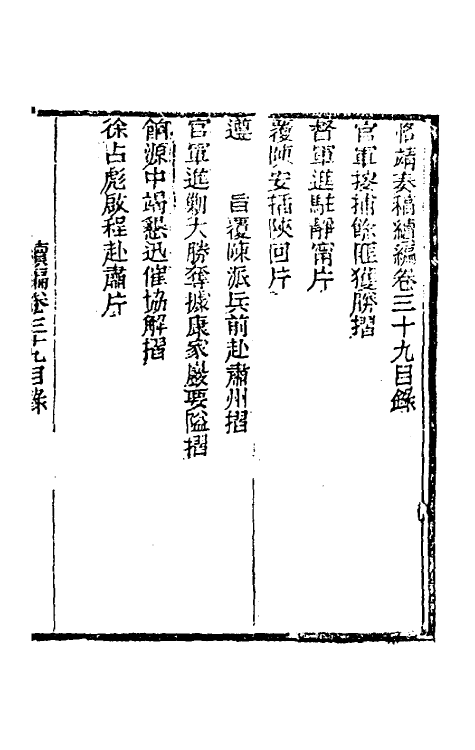 恪靖奏稿續編卷三十九目錄
官軍搜捕餘匪獲勝摺
督軍進駐靜甯片
覆陳安插陝回片
遵 旨覆陳派兵前赴肅州摺
官軍進剿大勝奪據康家巖要隘摺
餉源中竭懇迅催協解摺
徐占彪啟程赴肅片
續編卷三十九目錄